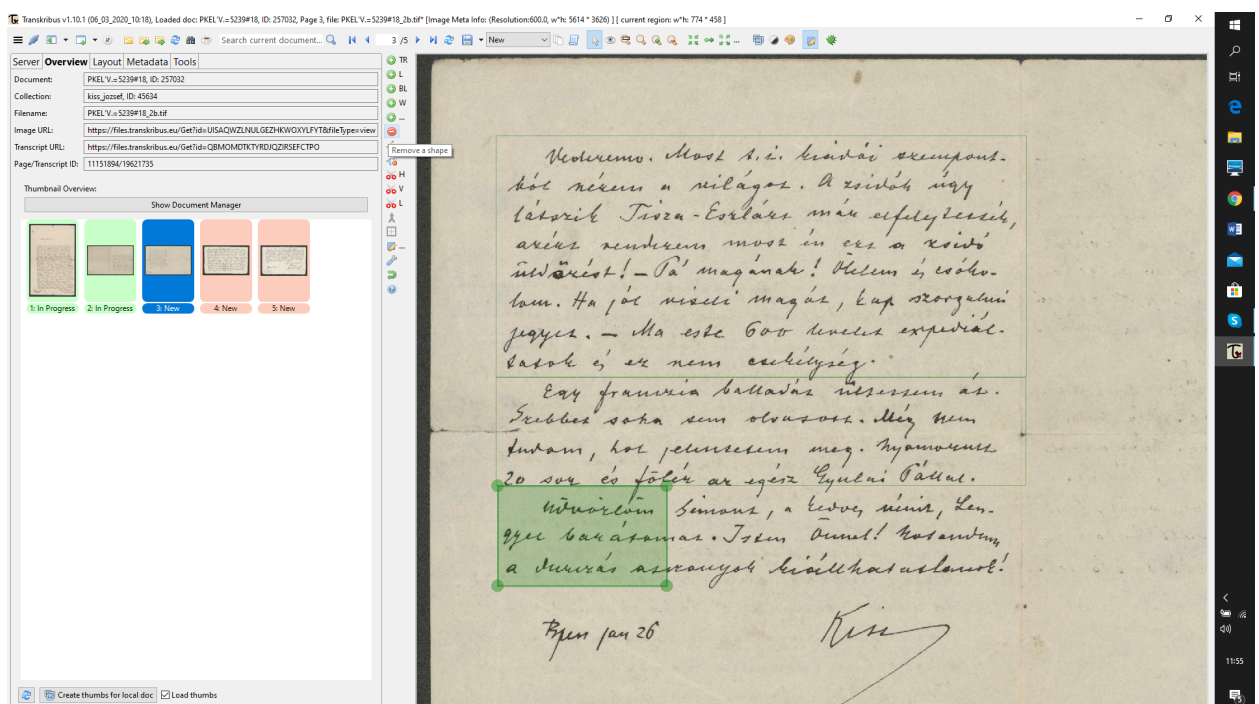 Transkribus v1.10.1 (06_03_2020_10:18), Loaded doc: PKEL'V.=5239#18, ID: 257032, Page 3, file: PKEL'V.=5239#18_2b.tif* [Image Meta Info: (Resolution:600.0, w*h: 5614 * 3626) ] [ current region: w*h: 774 * 458 ]
Search current document...
3 /5
New
Server Overview Layout Metadata Tools
Document: PKEL'V.=5239#18, ID: 257032
Collection: kiss_jozsef, ID: 45634
Filename: PKEL'V.=5239#18_2b.tif
Image URL: https://files.transkribus.eu/Get?id=UISAQWZLNULGEZHKWOXYLFYT&fileType=view
Transcript URL: https://files.transkribus.eu/Get?id=QBMOMDTKTYRDJQZIRSEFCTPO
Page/Transcript ID: 11151894/19621735
Thumbnail Overview:
Show Document Manager
1: In Progress 2: In Progress 3: New 4: New 5: New
Create thumbs for local doc Load thumbs
TR
L
BL
W
...
Remove a shape
H
V
L
...
Vederemo. Most t.i. kiadói szempont-
ból nézem a világot. A zsidók úgy
látszik Tisza-Eszlárt már elfelejtették,
azért rendezem most én ezt a zsidó
üldözést! - Pá magának! Ölelem és csóko-
lom. Ha jól viseli magát, kap szorgalmi
jegyet. - Ma este 600 levelet expediál-
tatok és ez nem csekélység.
Egy franczia balladát ültettem át.
Szebbet soha sem olvasott. Még nem
tudom, hol jelentetem meg. Nyomorult
20 sor és fölér az egész Gyulai Pállal.
Üdvözlöm Simont, a kedves nénit, Len-
gyel barátomat. Isten Önnel!
a duzzás asszonyok kiállhatatlanok!
Bpen jan 26
Kiss
11:55